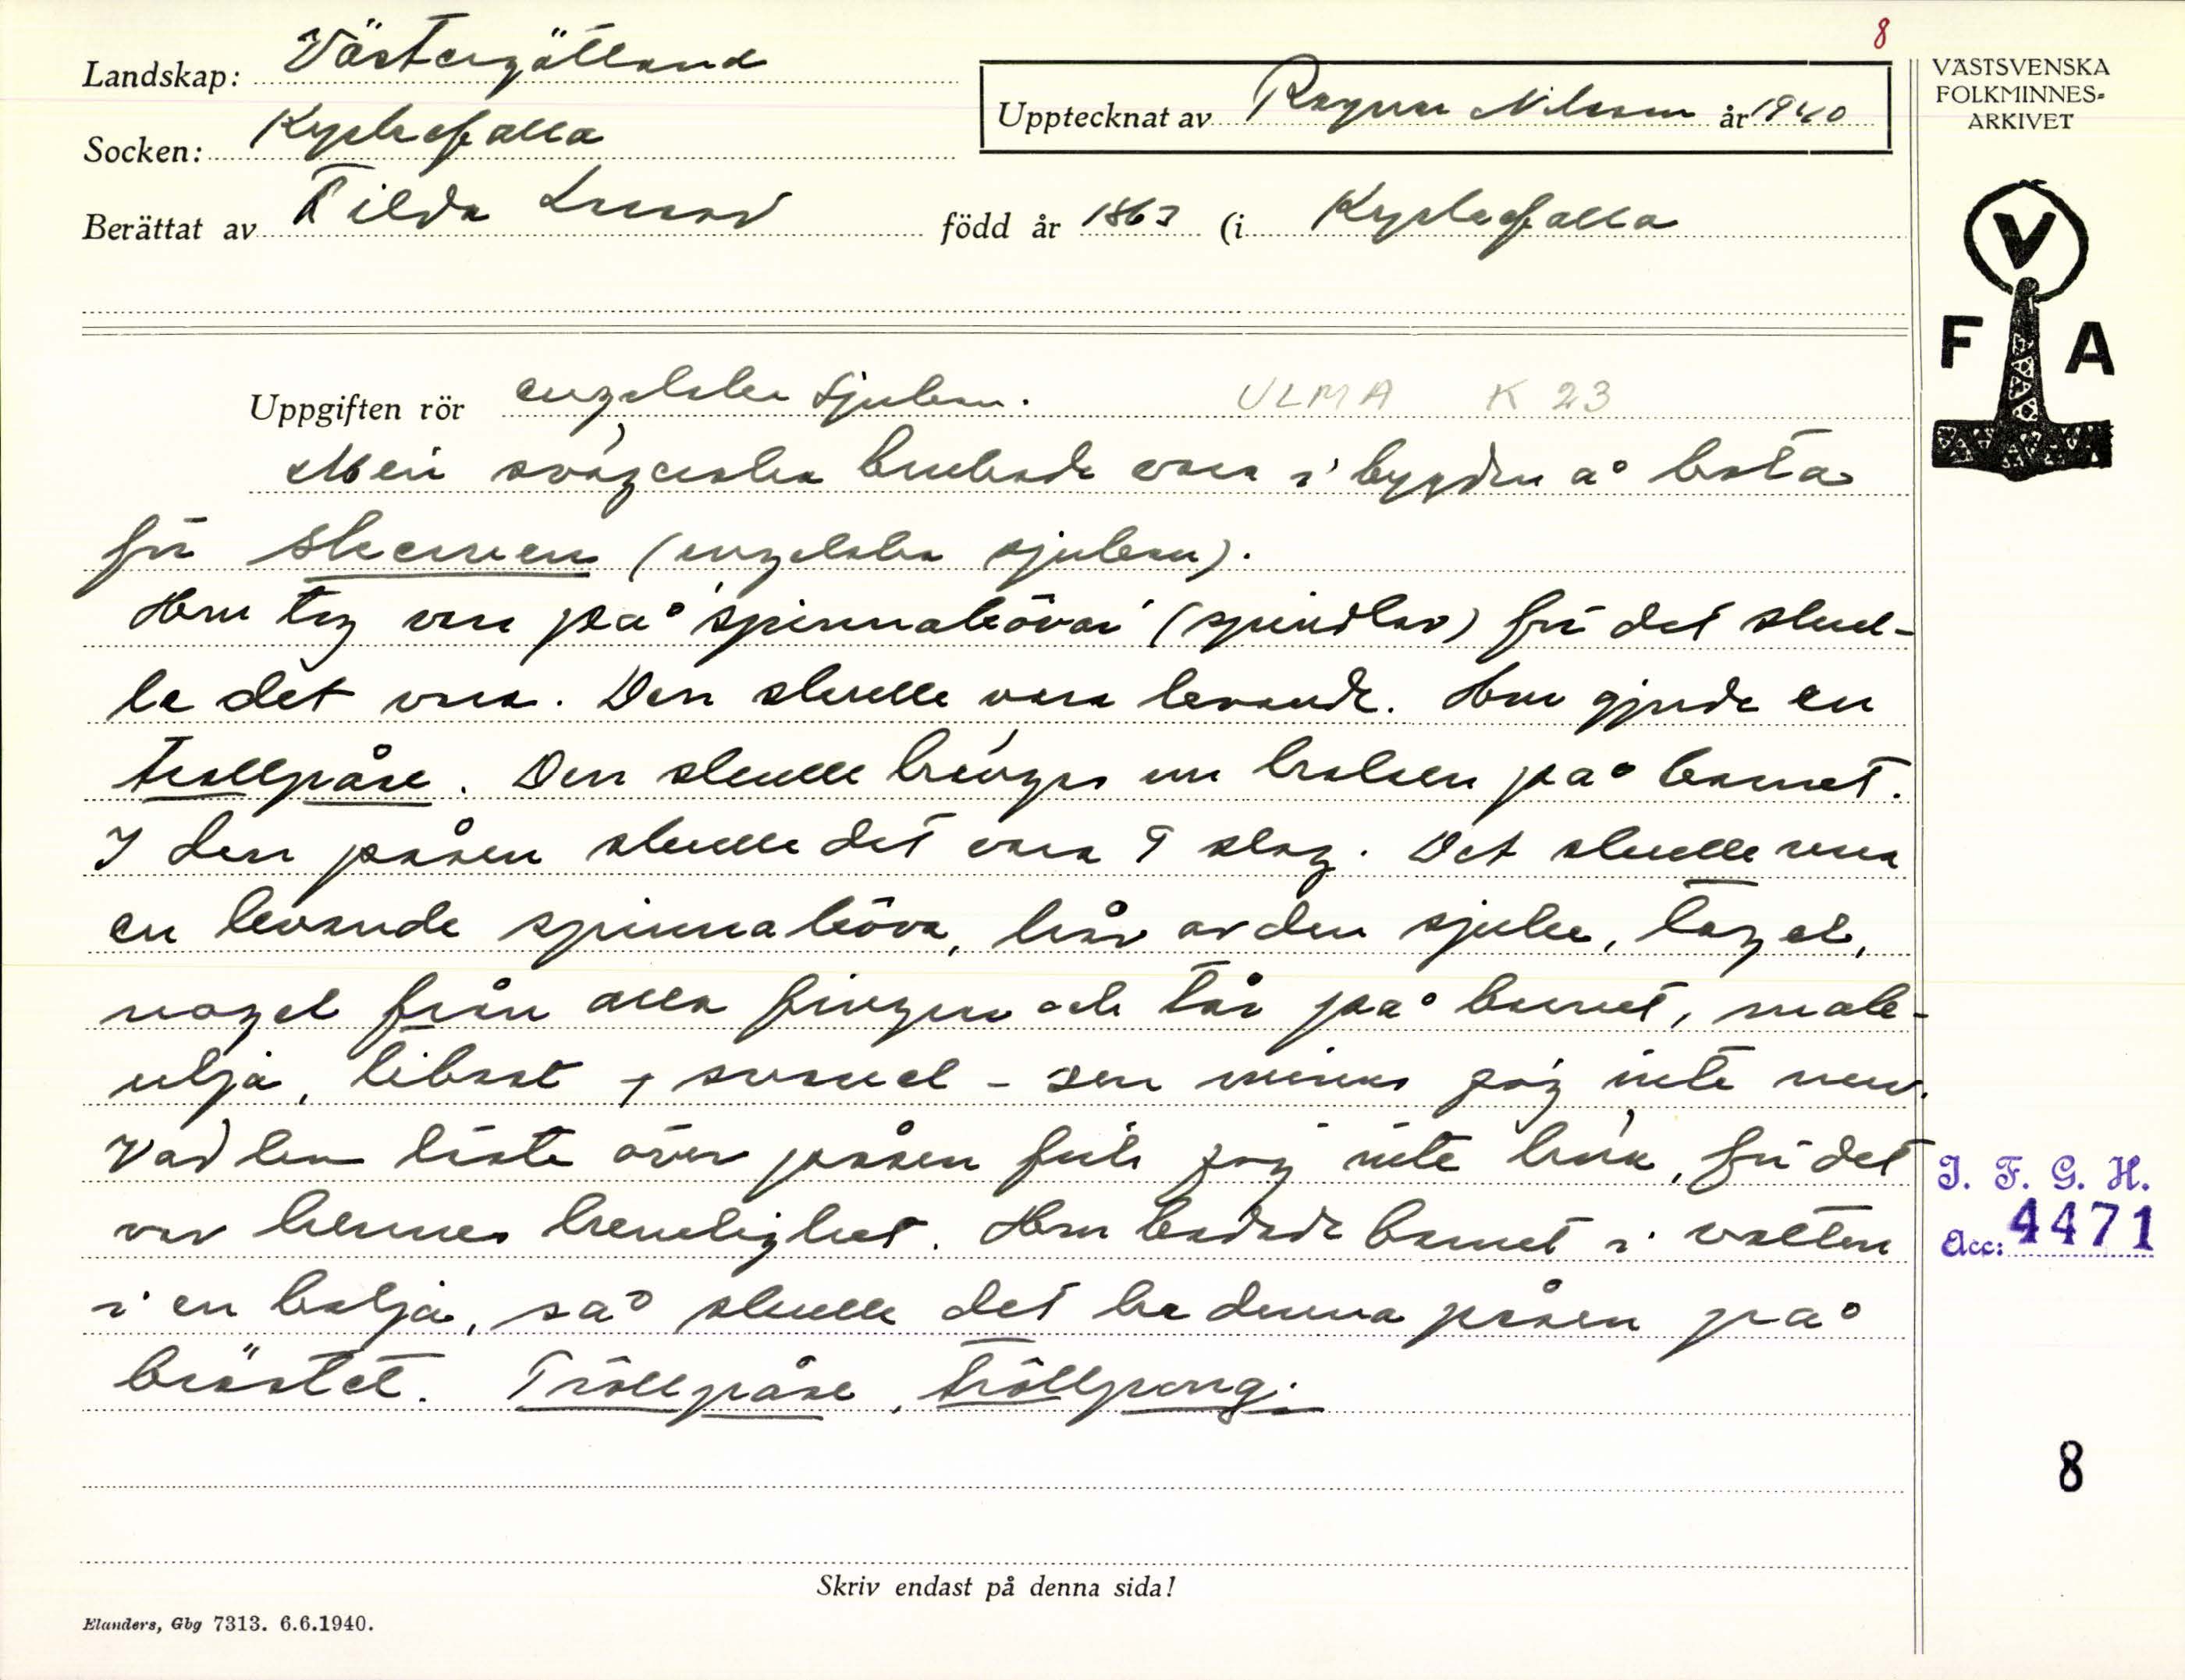 8
Landskap: Västergötland
Upptecknat av Ragnar Nilsson år 1940
VÄSTSVENSKA
FOLKMINNES=
ARKIVET
Socken: Kyrkefalla
Berättat av Tilda Lunnd född år 1863 (i Kyrkefalla
V
F A
Uppgiften rör engelska sjukan. ULMA K 23
Men svägerska brukade vara i bygden å bota
för skerven (engelska sjukan).
Hon tog vara på "spinnakövar" (spindlar) för det skul-
le det vara. Den skulle vara levande. Hon gjorde en
trollpåse. Den skulle hängas om halsen på barnet.
I den påsen skulle det vara 9 slag. Det skulle vara
en levande spinnaköva, hår av den sjuke, tagel,
nagel från alla fingrar och tår på barnet, male-
urja, tibast, svavel - sen minns jag inte mer.
Vad hon läste över påsen fick jag inte höra, för det
var hennes hemlighet. Hon badade barnet i vatten
i en balja, så skulle det ha denna påsen på
bröstet. Tröllpåse, tröllpong.
J. F. G. H.
Acc: 4471
8
Skriv endast på denna sida!
Elanders, Gbg 7313. 6.6.1940.